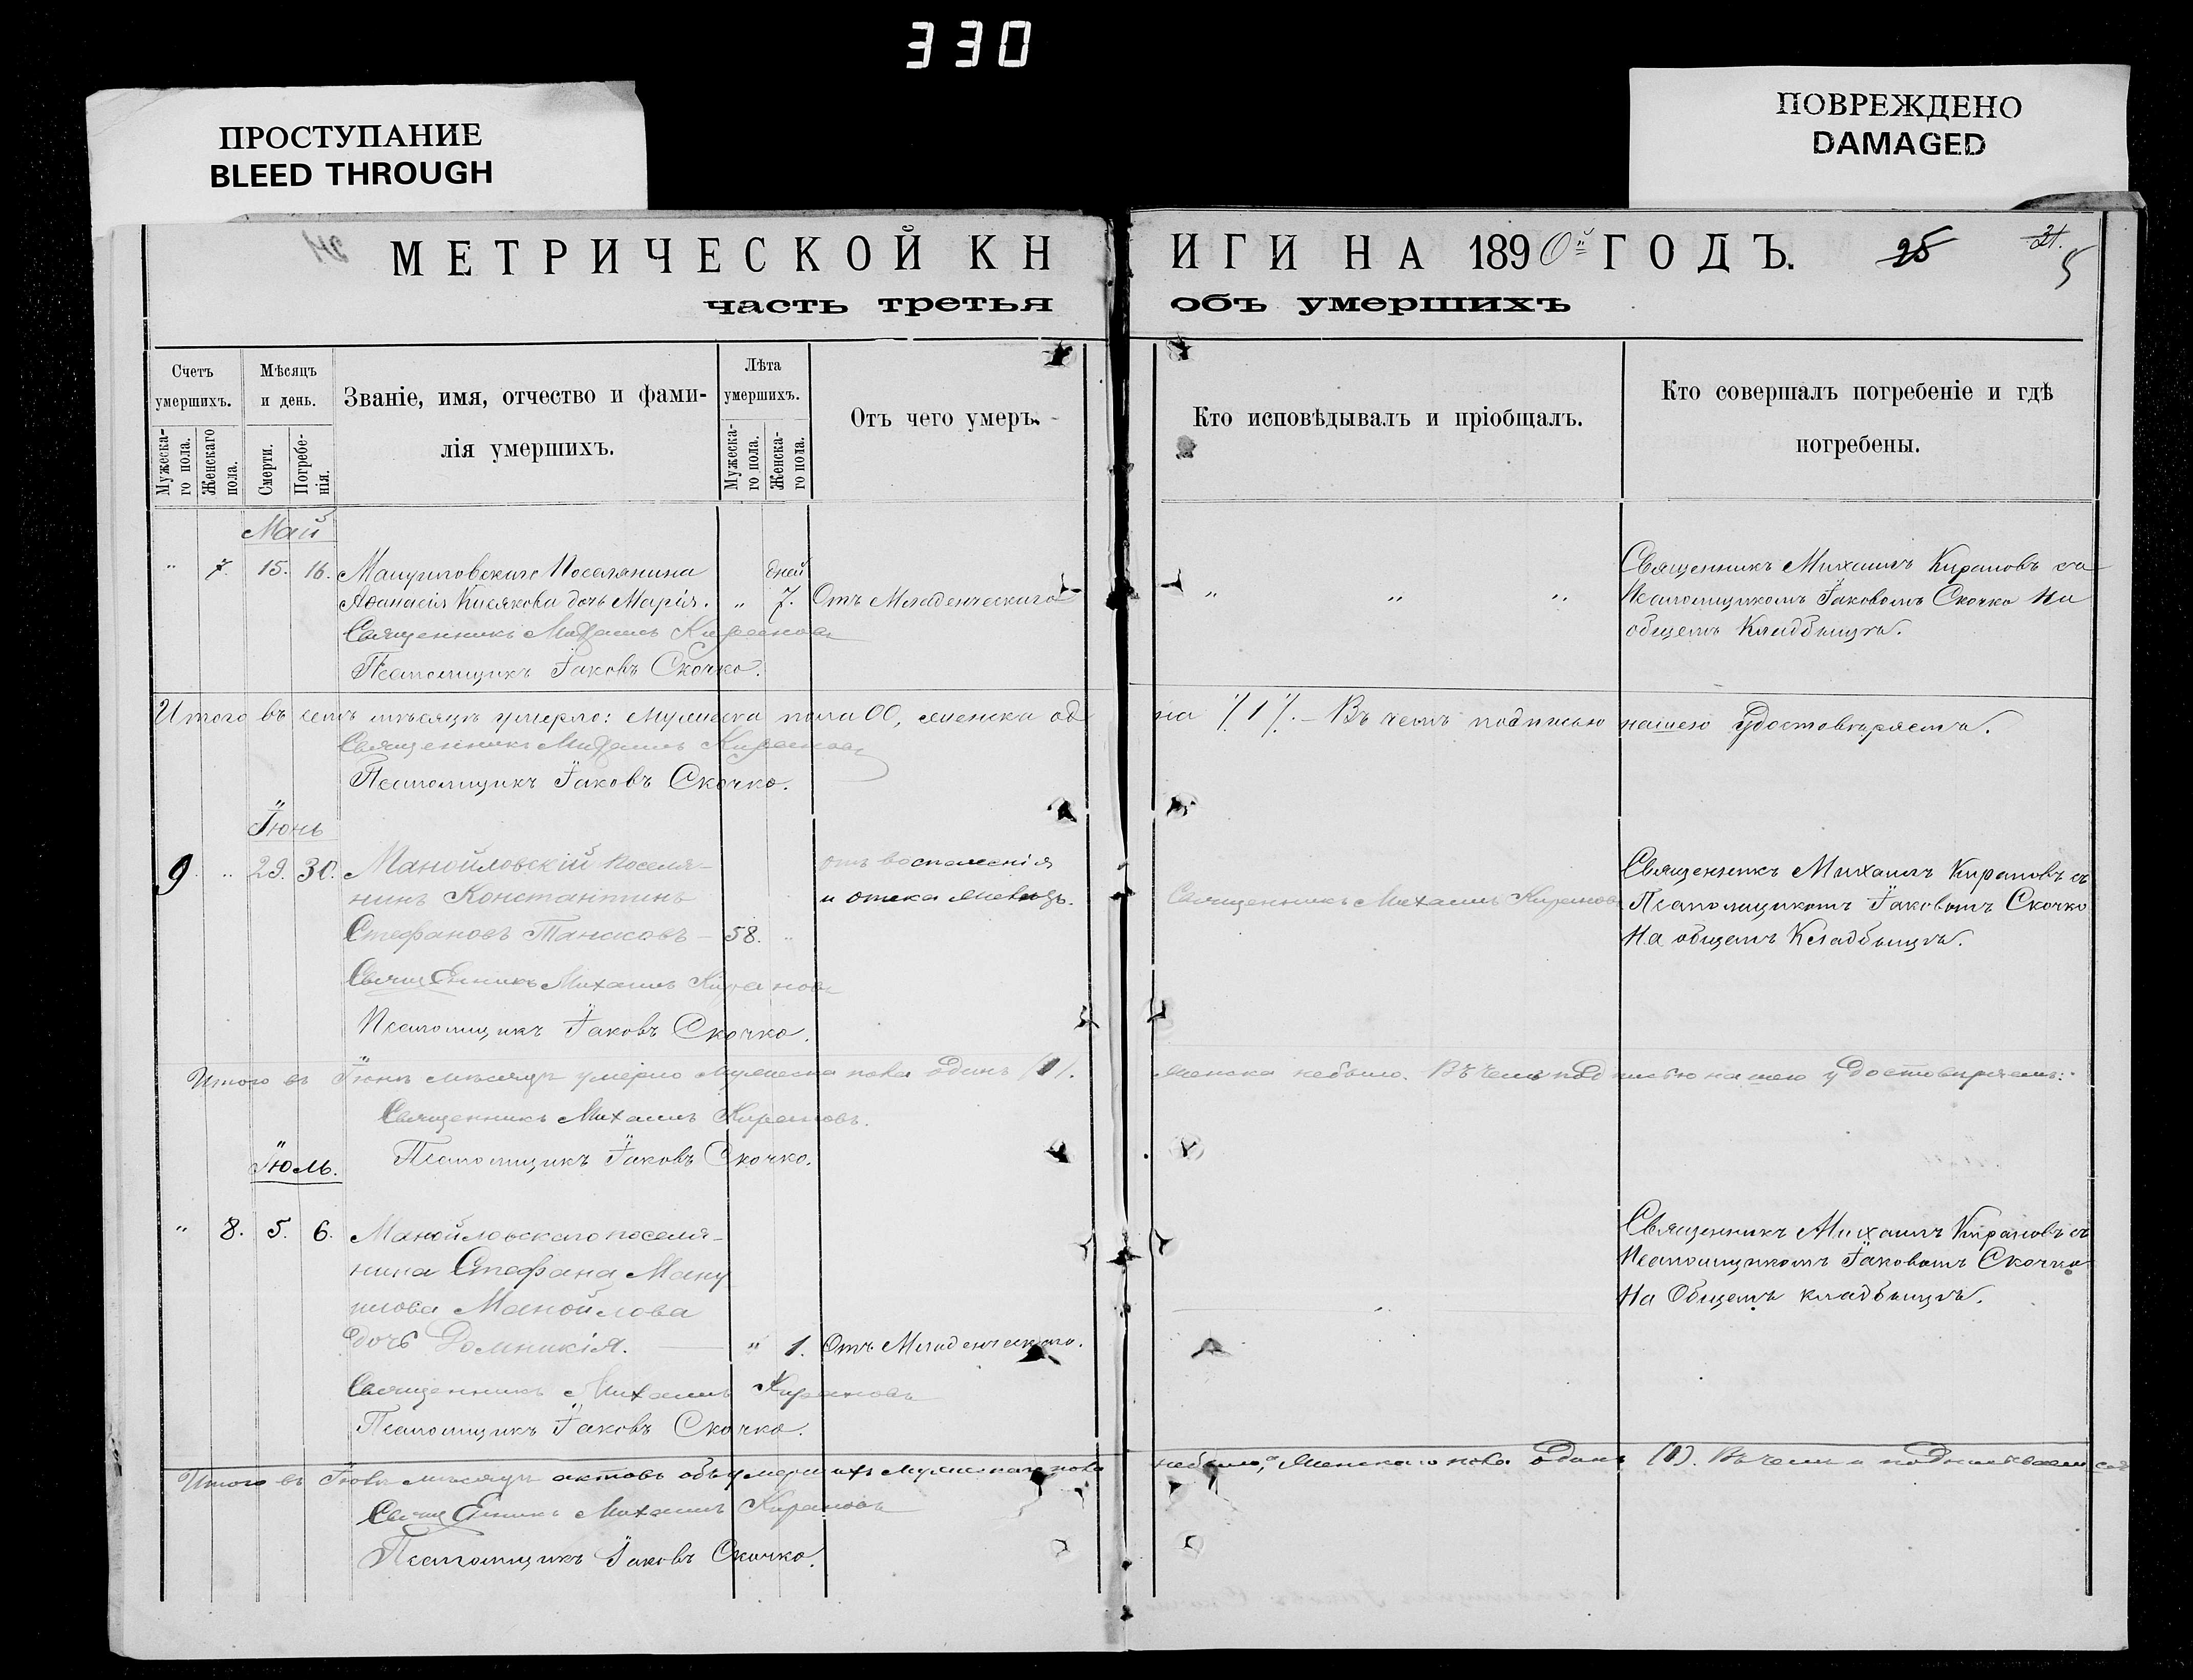 330
ПРОСТУПАНИЕ
BLEED THROUGH
ПОВРЕЖДЕНО
DAMAGED
МЕТРИЧЕСКОЙ КНИГИ НА 1890й ГОДЪ.
25
21.
5
часть третья объ умершихъ
Счетъ умершихъ.
Мужескаго пола.
Женскаго пола.
Мѣсяцъ и день.
Смерти.
Погребенія.
Званіе, имя, отчество и фами-
лія умершихъ.
Лѣта умершихъ.
Мужескаго пола.
Женскаго пола.
Отъ чего умеръ.
Кто исповѣдывалъ и пріобщалъ.
Кто совершалъ погребеніе и гдѣ
погребены.
Май
" 7. 15. 16. Поселянина дней Священникъ Михаилъ Кирановъ съ
Аѳанасія Кисякова дочь Марія. " 7. Отъ Младенческаго " " " Псаломщикомъ Іаковомъ Скочко на
Священникъ Михаилъ Кирановъ общемъ Кладбищѣ.
Псаломщикъ Іаковъ Скочко.
Итого въ семъ мѣсяцѣ умерло: мужеска пола 00, женска одна /1/. – Въ чемъ подписью нашею удостовѣряемъ.
Священникъ Михаилъ Кирановъ
Псаломщикъ Іаковъ Скочко.
Іюнь
9 " 29. 30. Манойловскій поселя- отъ воспаленія Священникъ Михаилъ Кирановъ съ
нинъ Константинъ и отека Священникъ Михаилъ Кирановъ Псаломщикомъ Іаковомъ Скочко
Стефановъ Танасовъ – 58. " На общемъ Кладбищѣ.
Священникъ Михаилъ Кирановъ
Псаломщикъ Іаковъ Скочко.
Итого въ Іюнѣ мѣсяцѣ умерло мужеска пола одинъ (1). женска небыло. Въ чемъ подписью нашею удостовѣряемъ:
Священникъ Михаилъ Кирановъ.
Псаломщикъ Іаковъ Скочко.
Іюль.
" 8. 5. 6. Манойловскаго поселя- Священникъ Михаилъ Кирановъ съ
нина Стефана Ману Псаломщикомъ Іаковомъ Скочко
илова Манойлова " На Общемъ кладбищѣ.
дочь Домникія. " 1. Отъ Младенческаго.
Священникъ Михаилъ Кирановъ
Псаломщикъ Іаковъ Скочко.
Итого въ Іюлѣ мѣсяцѣ актовъ объ умершихъ мужскаго пола небыло, а женскаго пола одинъ (1). Въ чемъ и подписываемся
Священникъ Михаилъ Кирановъ
Псаломщикъ Іаковъ Скочко.